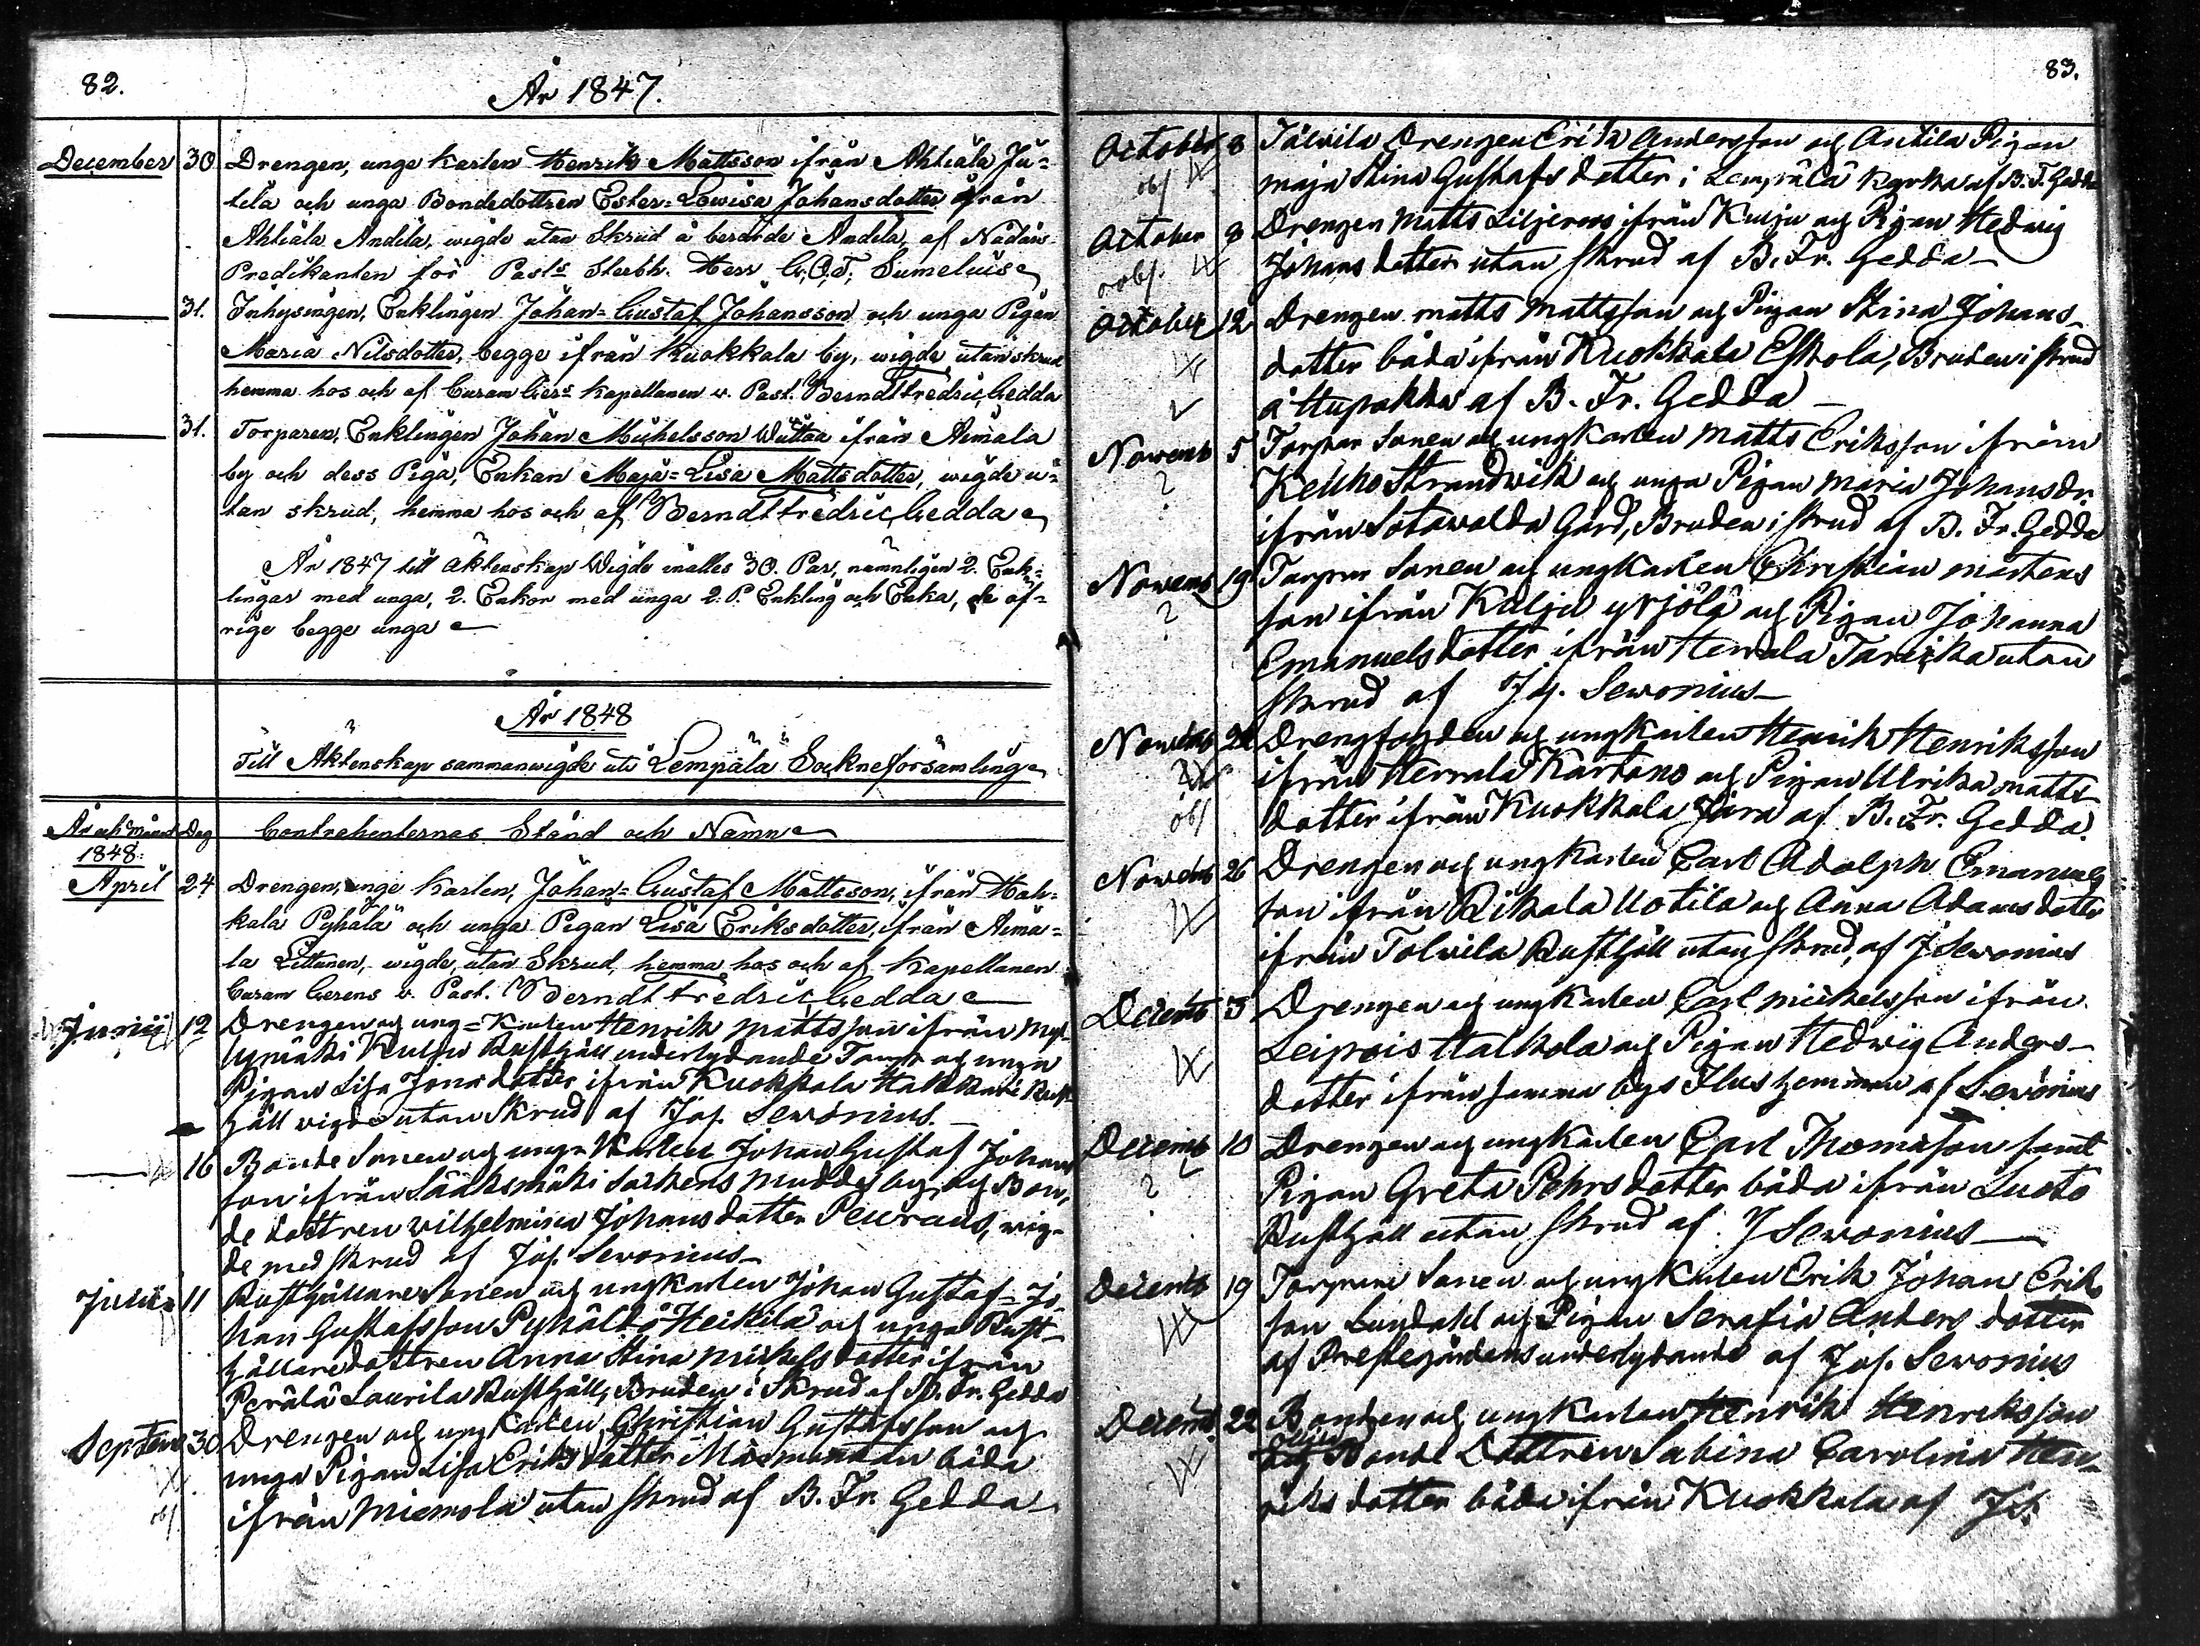 82.
År 1847.
December 30 Drengen, unge Karlen Henrik Mattsson ifrån Ahtiala Ju=
tila och unga Bondedottren Ester=Lowisa Johansdotter ifrån
Ahtiala Andila, wigde utan Skrud å berörde Andila, af Nådårs=
Predikanten för Past:s Sterbh. Herr G.O.F. Sumelius
31. Inhysingen, Enklingen Johan=Gustaf Johansson och unga Pigan
Maria Nilsdotter, begge ifrån Kuokkala by, wigde utan skrud
hemma hos och af Curam Ger:s Kapellanen v. Past. Berndt Fredric Gedda
31. Torparen, Enklingen Johan Michelsson ifrån Aimala
by och dess Piga, Enkan Maja=Lisa Mattsdotter, wigde u=
tan skrud, hemma hos och af Berndt Fredric Gedda
År 1847 till Äktenskap Wigde inalles 30. Par, nämnligen 2. Enk=
lingar med unga, 2. Enkor med unga 2. P. Enkling och Enka, de öf=
rige begge unga
År 1848
Till Äktenskap sammanwigde uti Lempälä Sockneförsamling
År och Månad Dag Contrahenternas Stånd och Namn
1848.
April 24 Drengen, unge Karlen, Johan=Gustaf Mattsson, ifrån Hah=
kala Pyhälä och unga Pigan Lisa Eriksdotter, ifrån Aima=
la Littunen, wigde, utan Skrud, hemma hos och af Kapellanen
Curam Gerens v. Past. Berndt Fredric Gedda
Junii 12 Drengen och ung=Karlen Henrik Mattsson ifrån Myl
lymäki Kulju Rusthåll underlydande Torp och unga
Pigan Lisa Jonasdotter ifrån Kuokkala Hakkari Rust
håll wigde utan Skrud af Joh. Sewonius.
16 Bonde Sonen och unge Karlen Johan Gustaf Johans
son ifrån Sääksmäki Sockens by och Bon,
de dottren Wilhelmina Johansdotter Peuraus, wig=
de med skrud af Joh. Sewonius
Julii 11 Rusthållare Sonen och ungkarlen Johan Gustaf= Jo
han Gustafsson Pyhältö Heikilä och unga Rust
hållaredottren Anna Stina Michelsdotter ifrån
Perälä Laurila Rusthåll, Bruden i Skrud af B. Fr. Gedda
Septem 30 Drengen och ungkarlen Christian Gustafsson och
unga Pigan Lisa Eriksdotter båda
ifrån Miemola utan skrud af B. Fr. Gedda
obs
83.
October 8 Tolvila Drengen Erik Andersson och Anttila Pigan
obs Maja Stina Gustafsdotter i Lempälä Kyrka af B. F. Gedda
October 8 Drengen Matts Liljeroos ifrån Kulju och Pigan Hedwig
obs. Johansdotter utan skrud af B. Fr. Gedda
October 12 Drengen Matts Mattsson och Pigan Stina Johans
dotter båda ifrån Kuokkala Eskola, Bruden i skrud
å Hupakka af B. Fr. Gedda
Novemb 5 Torpar Sonen och ungkarlen Matts Eriksson ifrån
? Keliho Strandwik och unga Pigan Maria Johansdr
ifrån Sotavalda Gård, Bruden i skrud af B. Fr. Gedda
Novemb 19 Torpar Sonen och ungkarlen Christian Mårtens
? son ifrån Kulju Yrjölä och Pigan Johanna
Emanuelsdotter ifrån Herrala utan
skrud af Joh. Sewonius
Novemb 24 Drengfogden och ungkarlen Henrik Henriksson
ifrån Herrala Kartano och Pigan Ulrika Matts
obs dotter ifrån Kuokkala Jära af B. Fr. Gedda.
Novemb 26 Drengen och ungkarlen Carl Adolph Emanuels
son ifrån Rikala Uotila och Anna Adamsdotter
ifrån Tolvila Rusthåll utan skrud, af J Sewonius
Decemb 3 Drengen och ungkarlen Carl Michelsson ifrån
Leipois Halkola och Pigan Hedwig Anders
dotter ifrån samma bys Ilus hemman af Sewonius
Decemb 10 Drengen och ungkarlen Carl Thomasson samt
? Pigan Greta Pehrsdotter båda ifrån Luoto
Rusthåll utan skrud af J Sewonius
Decemb 19 Torpare Sonen och ungkarlen Erik Johan Eriks
son Lundahl och Pigan Serafia Andersdotter
af Prestegårdens underlydande af Joh. Sewonius
Decemb. 22 Bonden och ungkarlen Henrik Henriksson
Bonde Dottren Sabina Carolina Hen
riksdotter båda ifrån Kuokkala af JS.